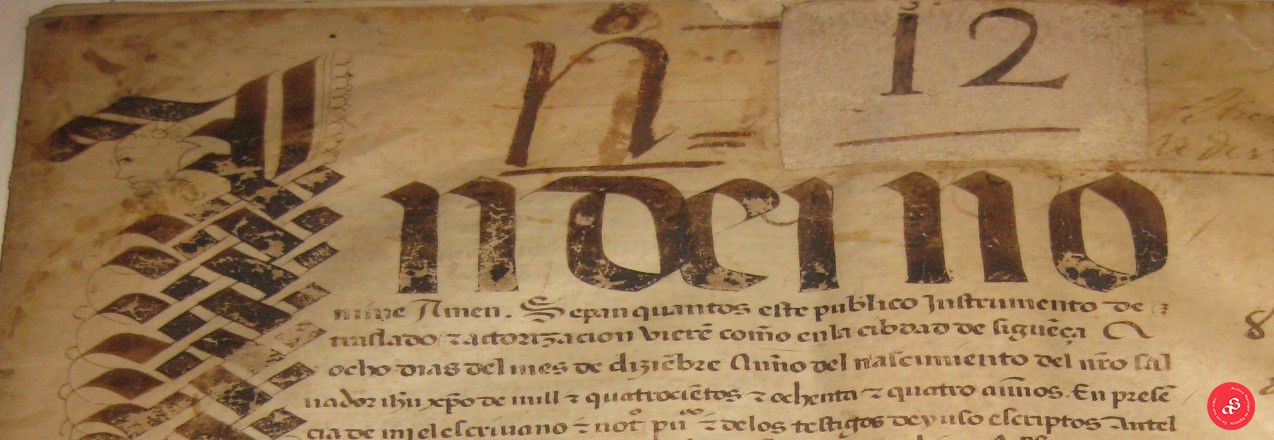 nº 12
In dei no
mine Amen. Sepan quantos este publico Instrumento de
traslado τ actorizacion vierē como en la cibdad de siguēça A
ocho dias del mes de diziēbre Anño del nascimiento del nr̄o sal
uador ihū xp̄o de mill τ quatrocīetos τ ochenta τ quatro annos. En prese
cia de mi el escriuano τ not.º pu.co τ delos testigos de yuso escriptos Antel